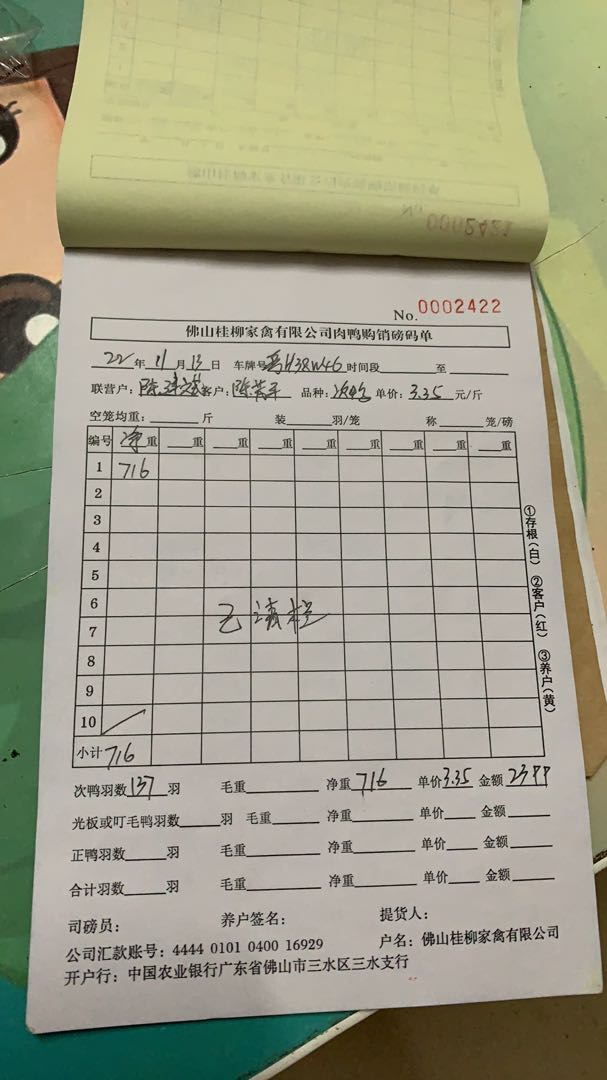 0002421
No. 0002422
佛山桂柳家禽有限公司肉鸭购销磅码单
22年11月13日 车牌号 H38W46 时间段 至
联营户: 陈 客户: 陈 品种: 次鸭 单价: 3.35 元/斤
空笼均重: 斤 装 羽/笼 称 笼/磅
编号 净重 重 重 重 重 重 重 重 重
1 716
2
3
4
5
6
已清栏
7
8
9
10
小计 716
①存根(白) ②客户(红) ③养户(黄)
次鸭羽数137羽 毛重 净重716 单价3.35 金额2399
光板或叮毛鸭羽数 羽 毛重 净重 单价 金额
正鸭羽数 羽 毛重 净重 单价 金额
合计羽数 羽 毛重 净重 单价 金额
司磅员: 养户签名: 提货人:
公司汇款账号: 4444 0101 0400 16929 户名: 佛山桂柳家禽有限公司
开户行: 中国农业银行广东省佛山市三水区三水支行